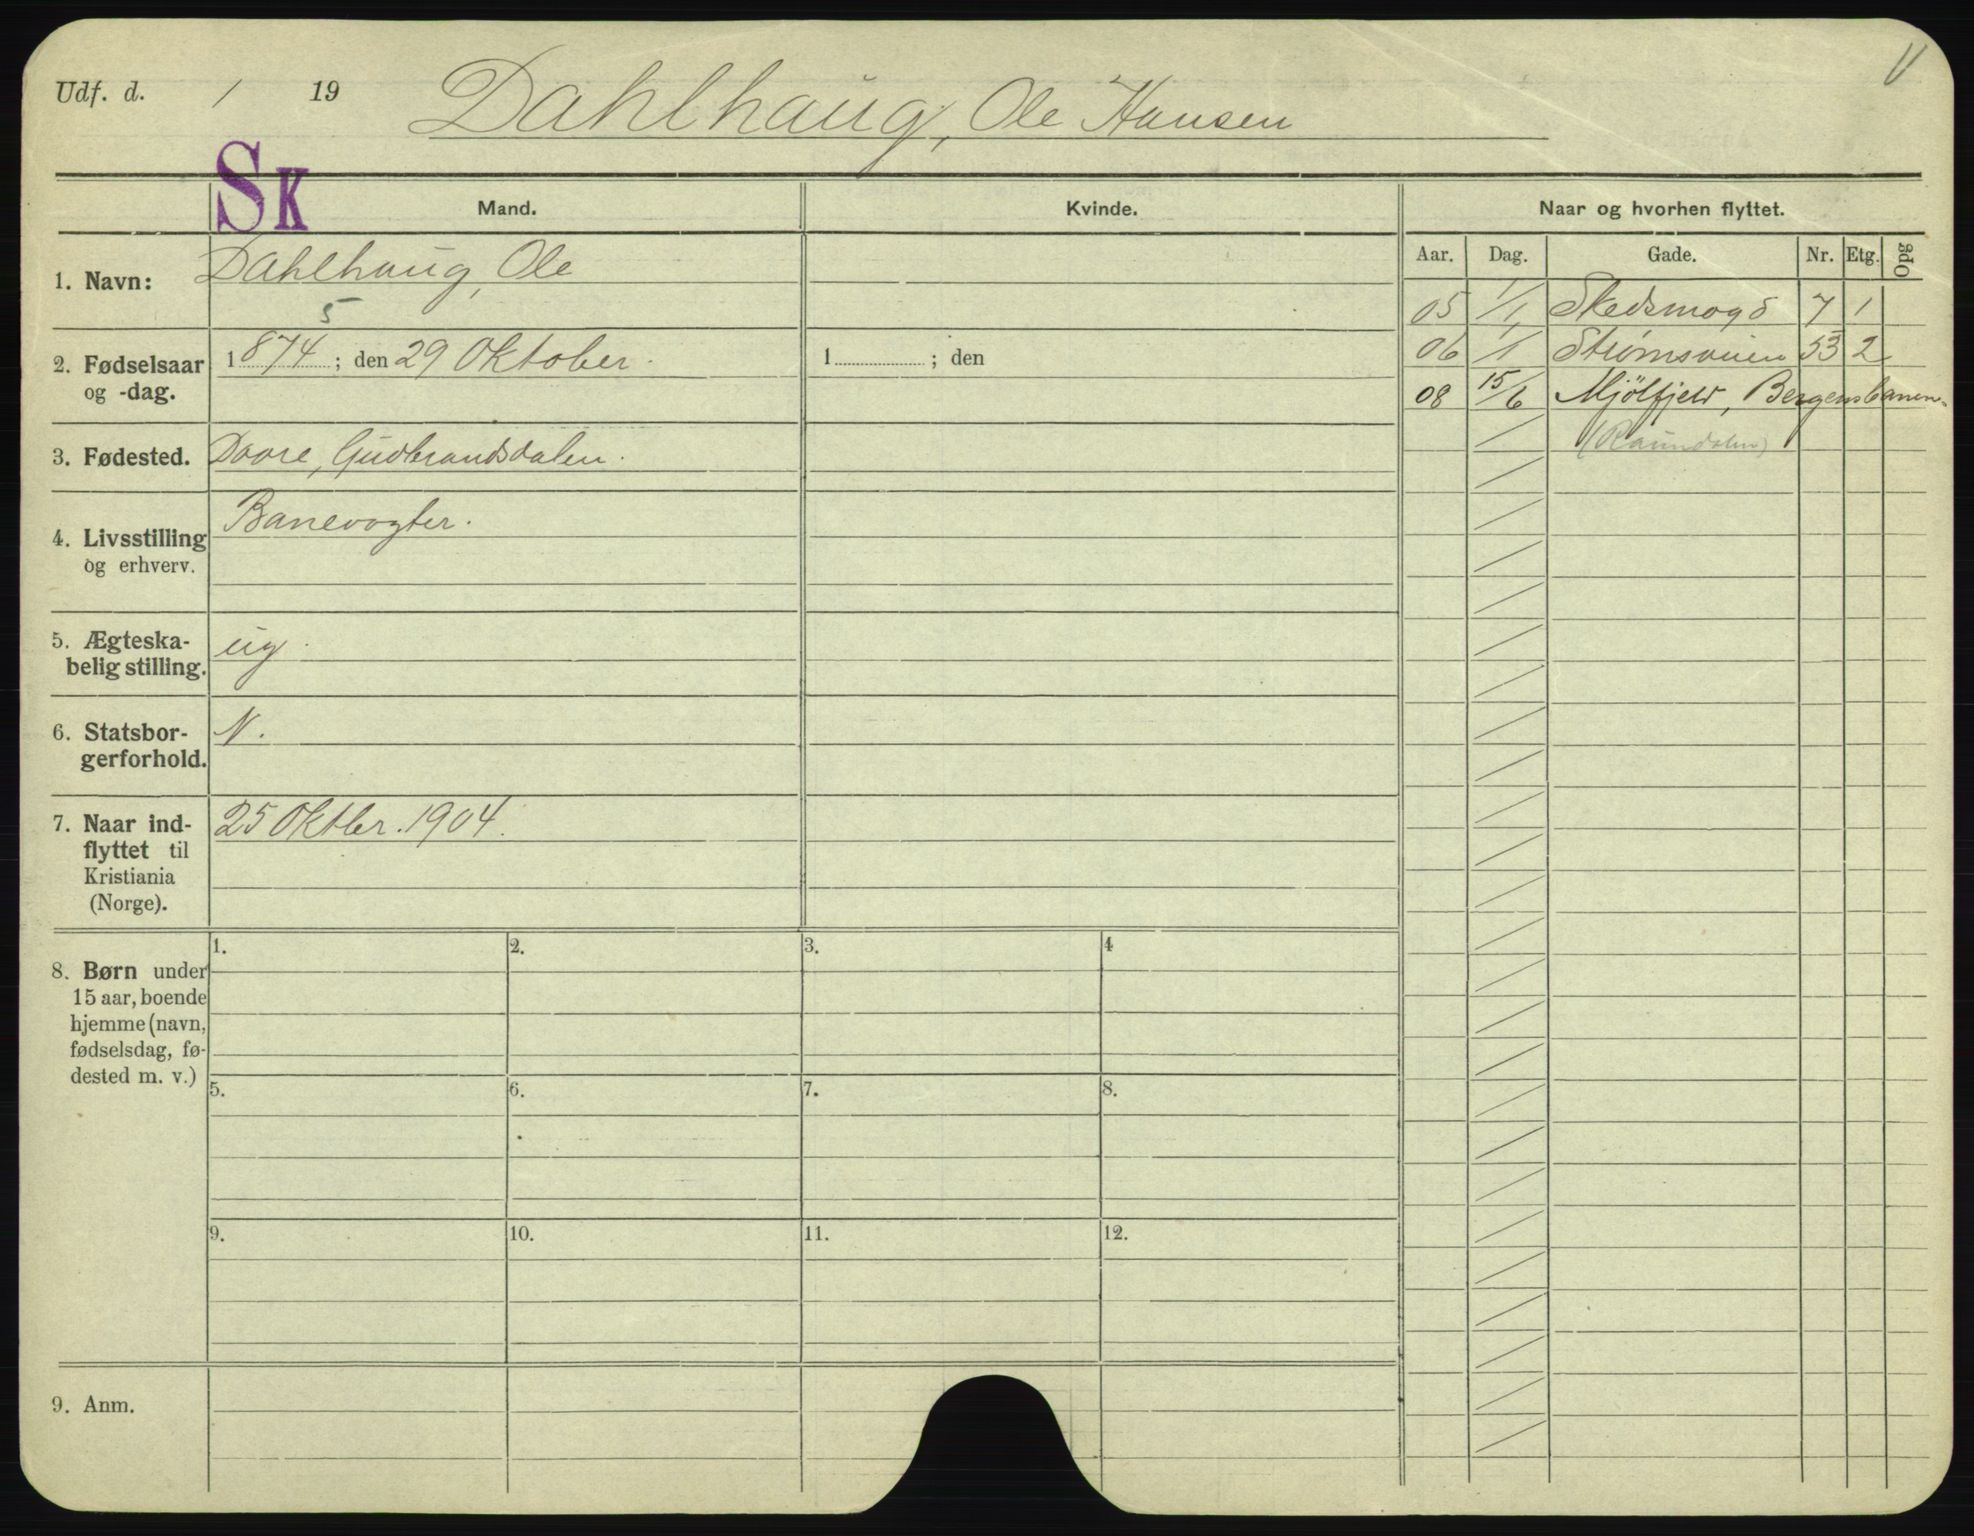 Udf. d. / 19 Dahlhaug, Ole Hansen
V
SK
Mand. Kvinde. Naar og hvorhen flyttet.
Aar. Dag. Gade. Nr. Etg. Opg
1. Navn: Dahlhaug, Ole
5
2. Fødselsaar 1874; den 29 Oktober. 1 ; den
og -dag.
3. Fødested. Dovre, Gudbrandsdalen.
4. Livsstilling Banevogter.
og erhverv.
5. Ægteska- ug.
belig stilling.
6. Statsbor- N.
gerforhold.
7. Naar ind- 25 Oktber. 1904.
flyttet til
Kristiania
(Norge).
05 1/1 Skedsmogd 7 1
06 1/1 Strømsveien 53 2
08 15/6 Mjölfjeld, Bergensbanen.
(Raundalen)
1. 2. 3. 4
8. Børn under
15 aar, boende
hjemme (navn,
fødselsdag, fø-
dested m. v.)
5. 6. 7. 8.
9. 10. 11. 12.
9. Anm.